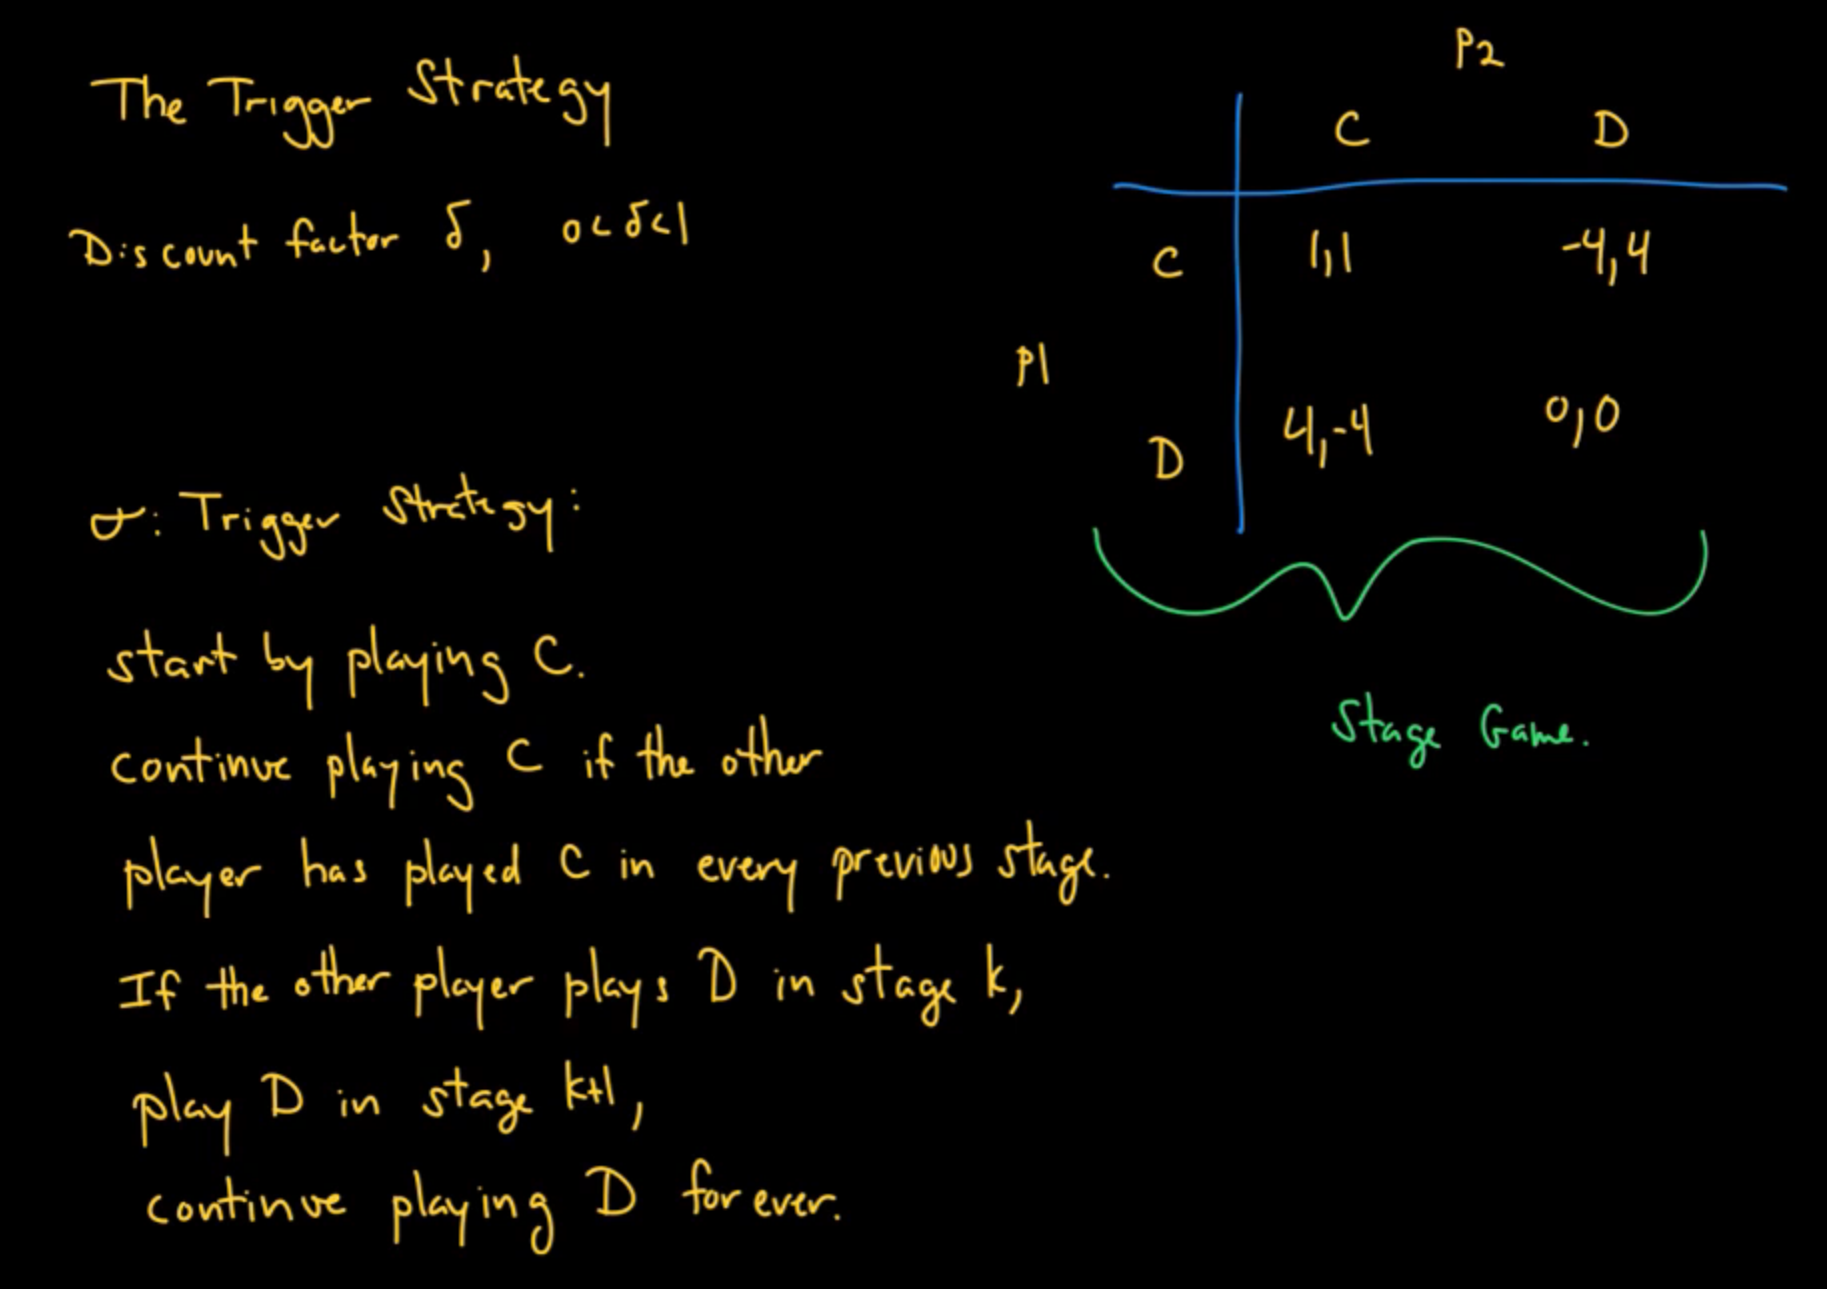 The Trigger Strategy
Discount factor δ, 0<δ<1
σ: Trigger Strategy:
start by playing C.
continue playing C if the other
player has played C in every previous stage.
If the other player plays D in stage k,
play D in stage k+1,
continue playing D forever.
P2
C D
C 1,1 -4,4
P1
D 4,-4 0,0
Stage Game.